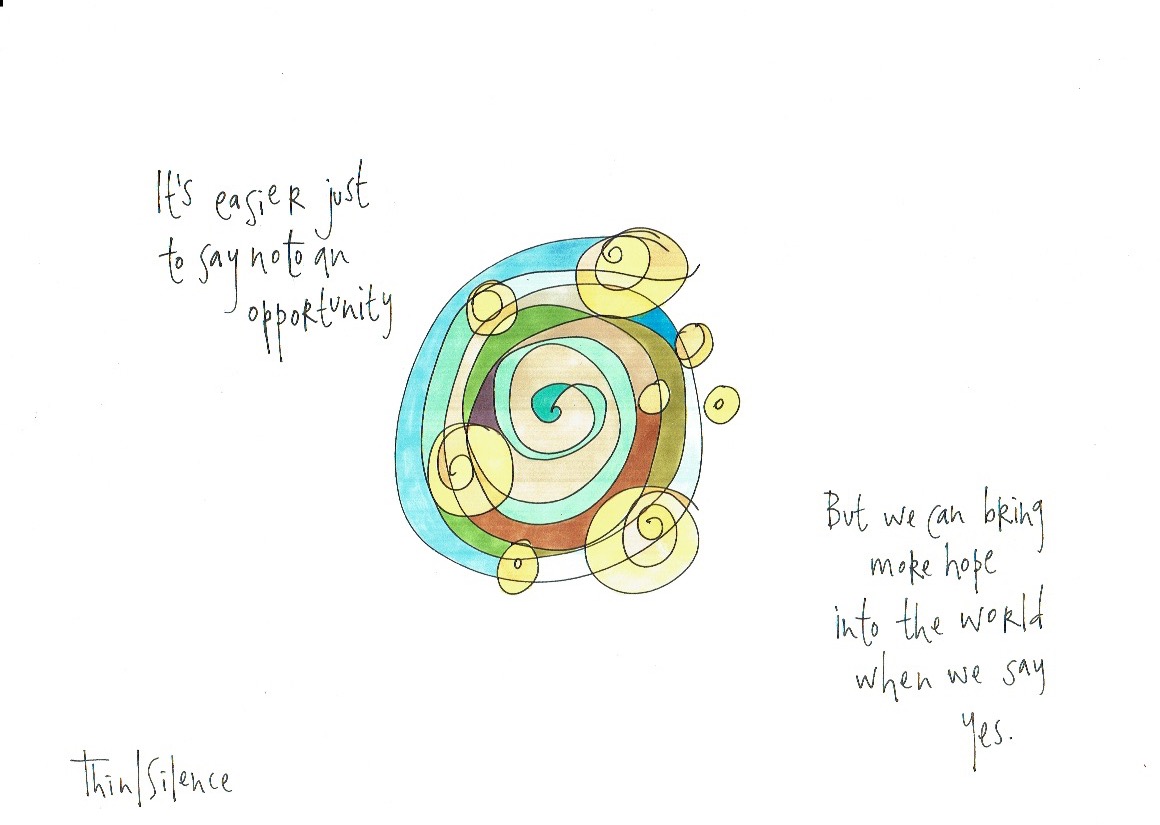 It's easier just
to say no to an
opportunity
But we can bring
more hope
into the world
when we say
yes.
Thin/Silence